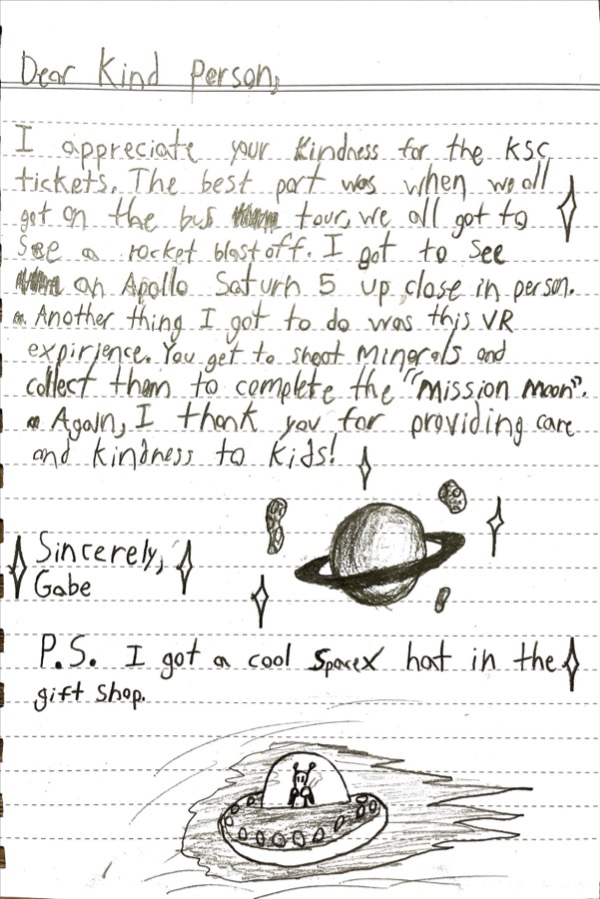 Dear Kind Person,
I appreciate your kindness for the KSC
tickets. The best part was when we all
got on the bus tour, we all got to
see a rocket blast off. I got to see
an Apollo Saturn 5 up close in person.
Another thing I got to do was this VR
expirience. You get to shoot minerals and
collect them to complete the "Mission Moon".
Again, I thank you for providing care
and kindness to kids!
Sincerely,
Gabe
P.S. I got a cool SpaceX hat in the
gift shop.